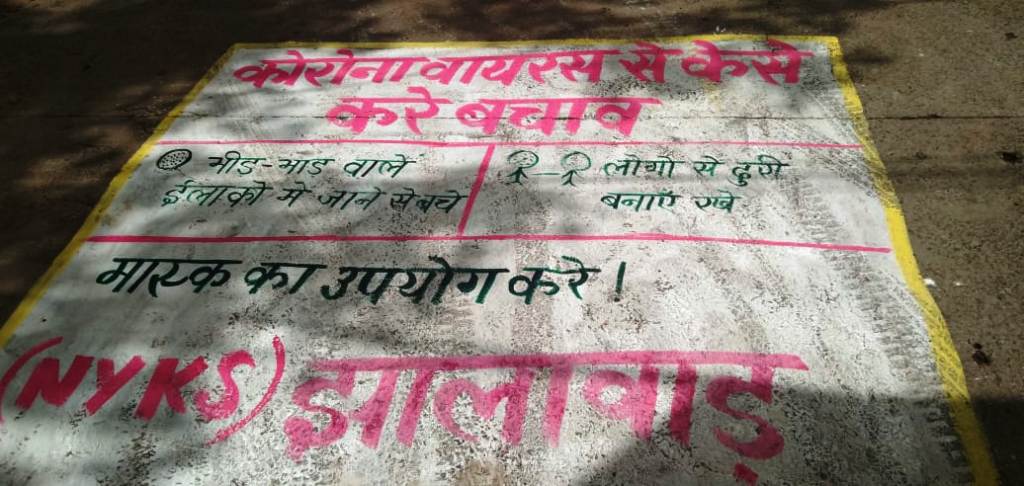 कोरोना वायरस से कैसे
करे बचाव
भीड़-भाड़ वाले
ईलाको मे जाने से बचे
लोगो से दुरी
बनाएं रखे
मास्क का उपयोग करे!
(NYKS) झालावाड़